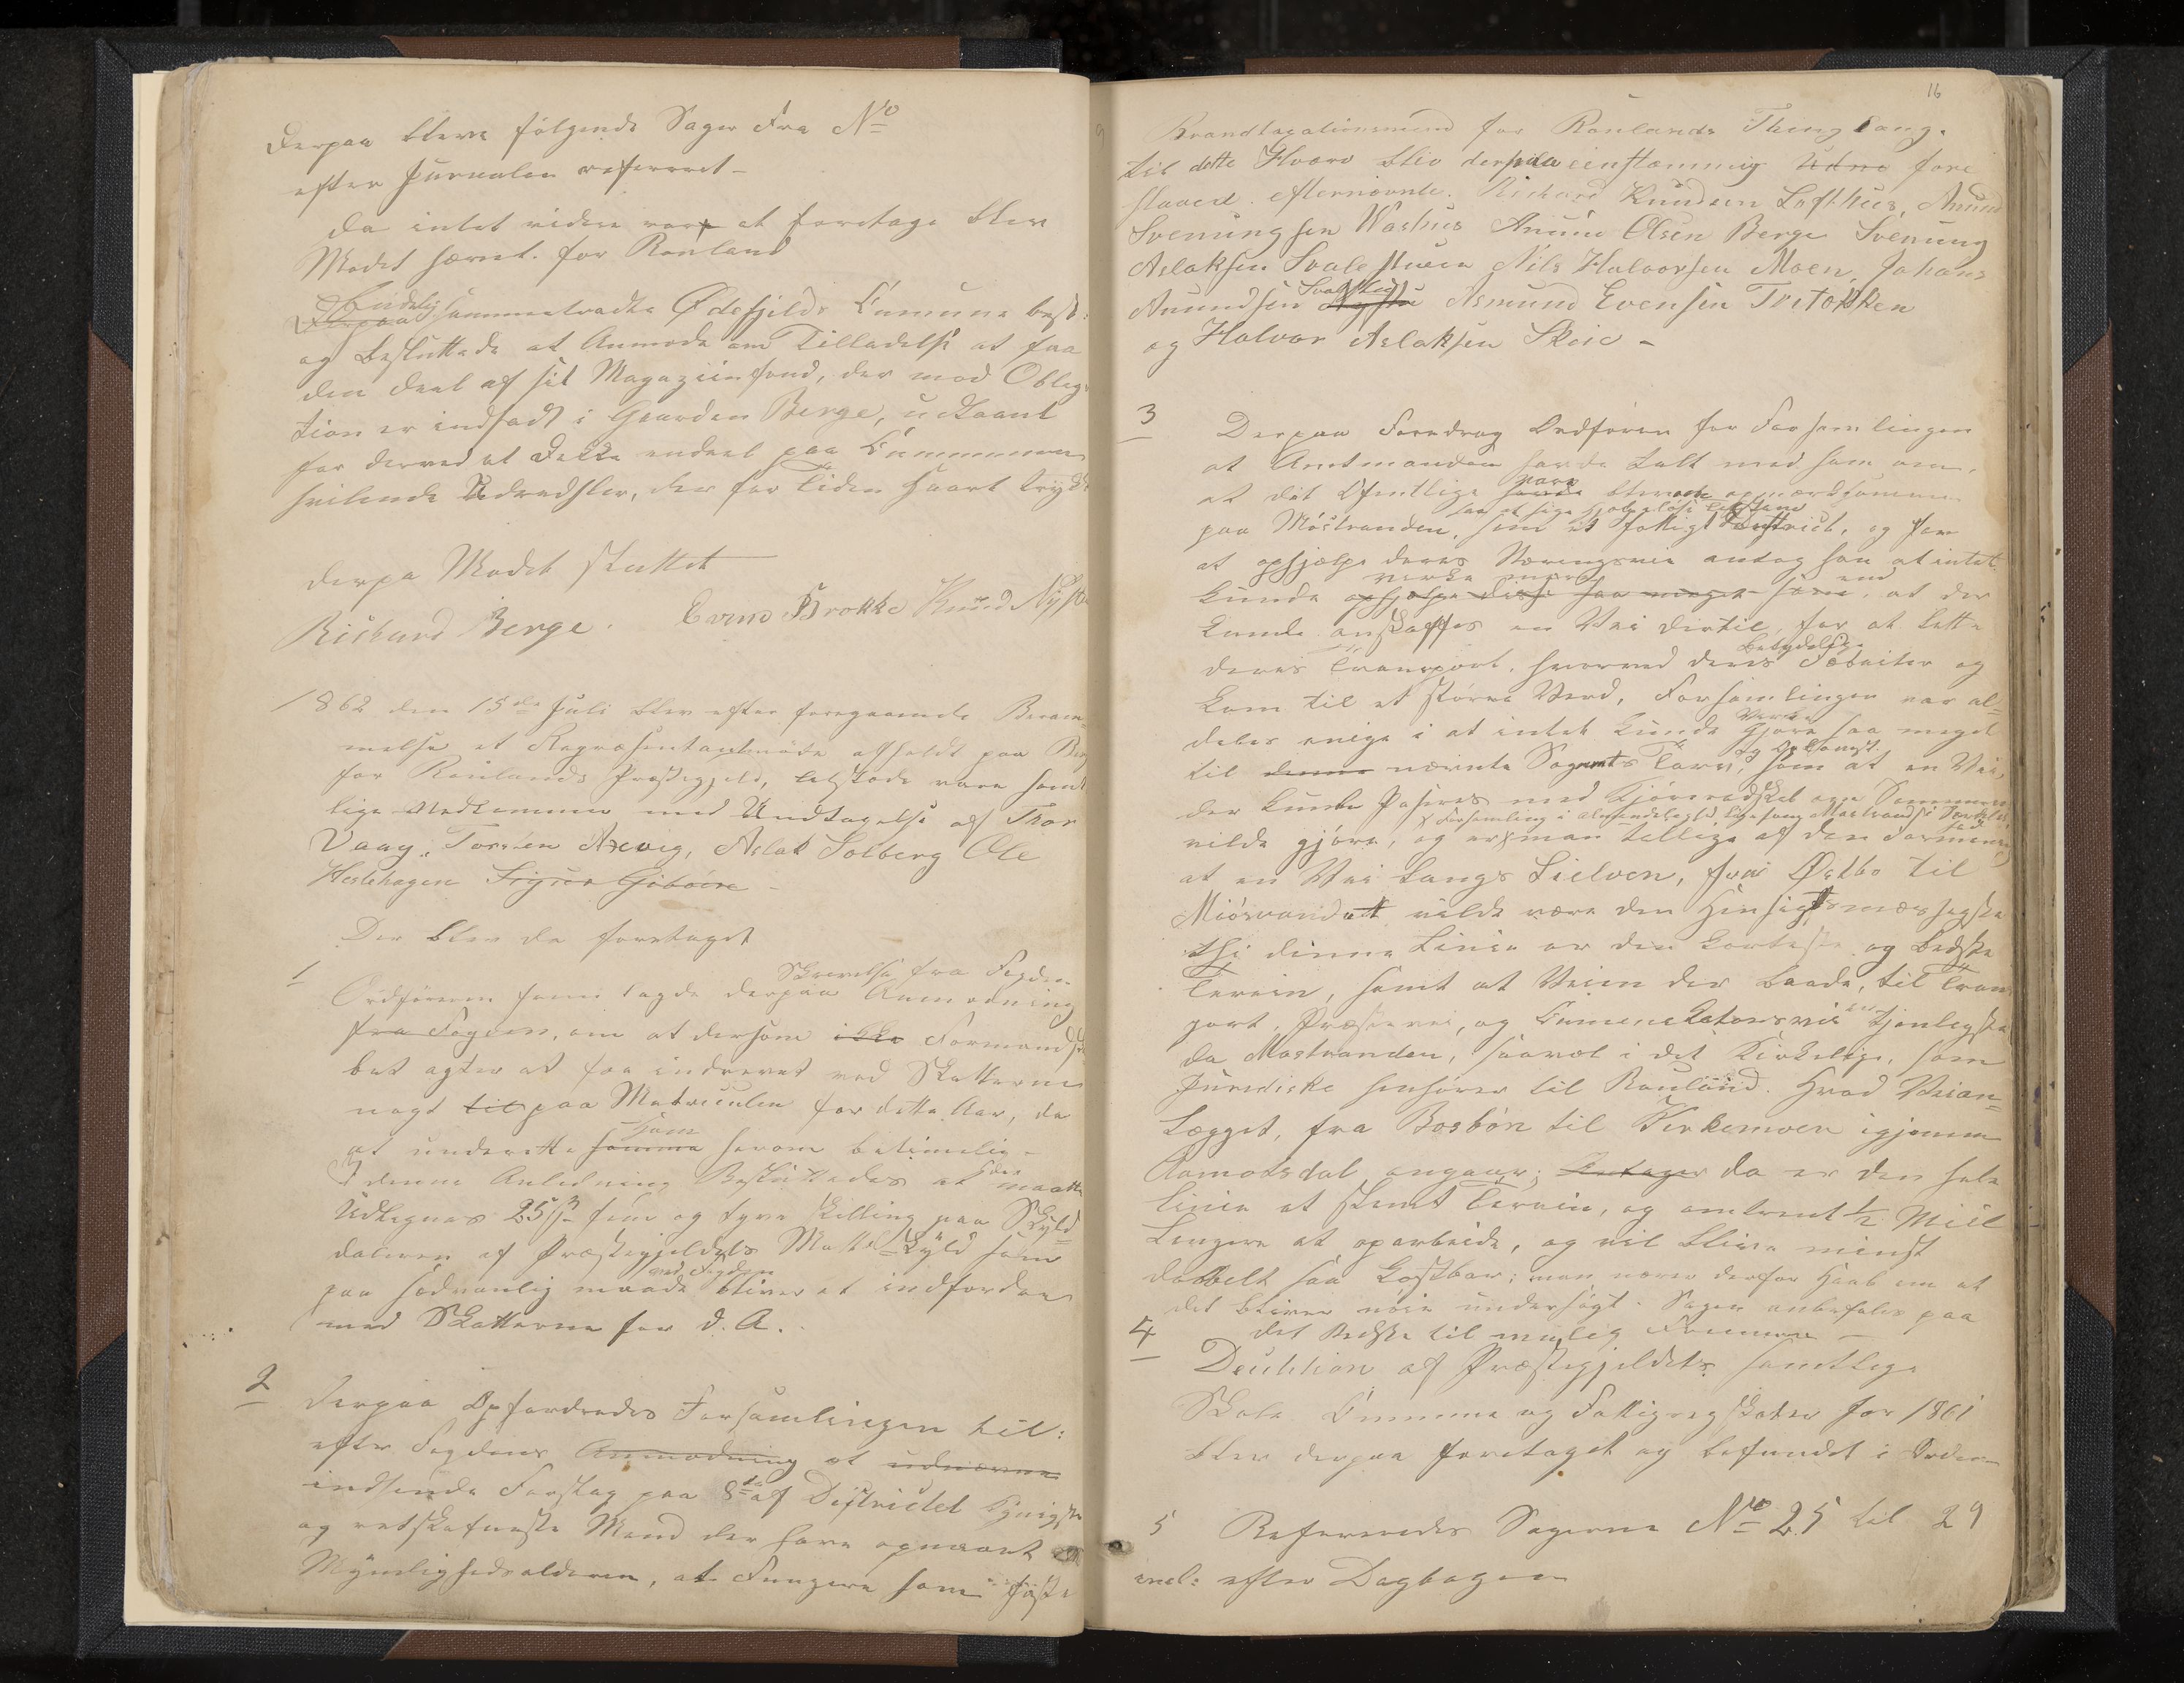 Derpaa bleve følgende Sager fra No
efter Jurnalen refereret –
da intet videre var at foretage blev
Modet hævet. for Rauland
Endelig
Derpaa sammentraadte Ødefjelds Cumune best:
og Besluttede at Anmode om Tilladelse at faa
den deel af sit Magaziinfond, der mod Obliga
tion er indsadt i Gaarden Berge, udlaant
for derved at dekke endeel paa Cummunen
hvilende Udredsler, der for Tiden haart tryk
derpa Modet sluttet
Richard Berge. Evind Brokke Knud Nystu
1862 den 15de Juli blev efter foregaaende Beram
melse et Repræsentantmøde afholdt paa Berg
for Raulands Præstegjeld, tilstæde vare samt
lige Medlemmer med Undtagelse af Thor
Vaag, Torsten Arvig, Aslak Solberg Ole
Heslehagen Sigurd Gibøen –
Der blev da foretaget
1
Skrivelse fra Fogden
Ordføreren fremlagde derpaa Anmodning
fra Fogden, om at dersom ikke Formandska
bet agter at faa inddrevet ved Skatterne
nogt til paa Matriculen for dette Aar, da
ham
at underette samme herom betimelig –
I denne Anledning Besluttedes at der maatte
Udlignes 25 s fem og tyve skilling paa Skyld
daleren af Præstegjeldets Matrikkelskyld som
ved Fogden
paa sedvanlig maade bliver at indfordre
med Skatterne for d. A.
2 derpaa Opfordredes Forsamlingen til:
efter Fogdens Anmodning at udnævne
indsende Forslag paa 8te af Districtet kyndigste
og retskafneste Mænd der have opnaaet
Myndighedsalderen, at fungere som faste
16
9
Brandtaxationsmænd for Raulands Thinglaug.
til dette Hværv blev derpaa eenstemmig Udne fore
slaaed efternævnte. Richard Knudsen Lofthus, Anund
Svenungsen Washus Anund Olsen Berge Svenung
Aslaksen Svalestuen Nils Halvorsen Moen, Johans
Svalestu
Anundsen Nystu Asmund Evensen Tveitokken
og Halvor Aslaksen Skeie –
3 Derpaa Foredrog Ordføren for Forsamlingen
at Amtmanden havde talt med ham om,
vare
at det Ofentlige havde blevet opmærksommen
saa at sige hjelpeløse tilstand
paa Møstranden, som et fattigt District, og for
at ophjælpe deres Næringsveie antog han at intet
verke mere end
kunde ophjælpe disse saa meget som, at der
kunde anskaffes en Vei dertil, for at lette
Betydelige
deres Transport, hvorved deres Fæbeiter og
kom til et større Værd, Forsamlingen var al=
Verke
deles enige i at intet kunde gjøre saa meget
og Opkomst
til denne nævnte Sogns Tarv, som at en Vei
der kunde Paseres med Kjøreredskab om Sommeren
x Forsamling i almindelighed, ligesom Mostrands
vilde gjøre, og er x man tillige af den Formening
at en Vei langs Lielven, fra Østbø til
Miøsvandet vilde være den Hensigtsmæssigste
thi denne Linie er den korteste og bedste
Terein, samt at Veien der baade, til Trans
port, Præstevei, og Cumunicationsvei tjenligste
da Møstranden, saavel i det Kirkelige, som
Juridiske henhører til Rauland. Hvad Veian=
lægget, fra Bosbøn til Kirkemoen igjennem
Aamotsdal angaar; antager da er den hele
linie et slemt Terrein, og omtrent ½ Miil
Længere at oparbeide, og vil blive minst
dobbelt saa kostbar; man nærer derfor Haab om at
det bliver nøie undersøgt. Sagen anbefales paa
det Bedste til mulig Fremme –
4
Decition af Præstegjeldets samtlige
Skole Cummune og Fattigregskaber for 1861
blev derpaa foretaget og befundet i Orden
5 Refereredes Sagerne No 25 til 29
incl: efter Dagbogen